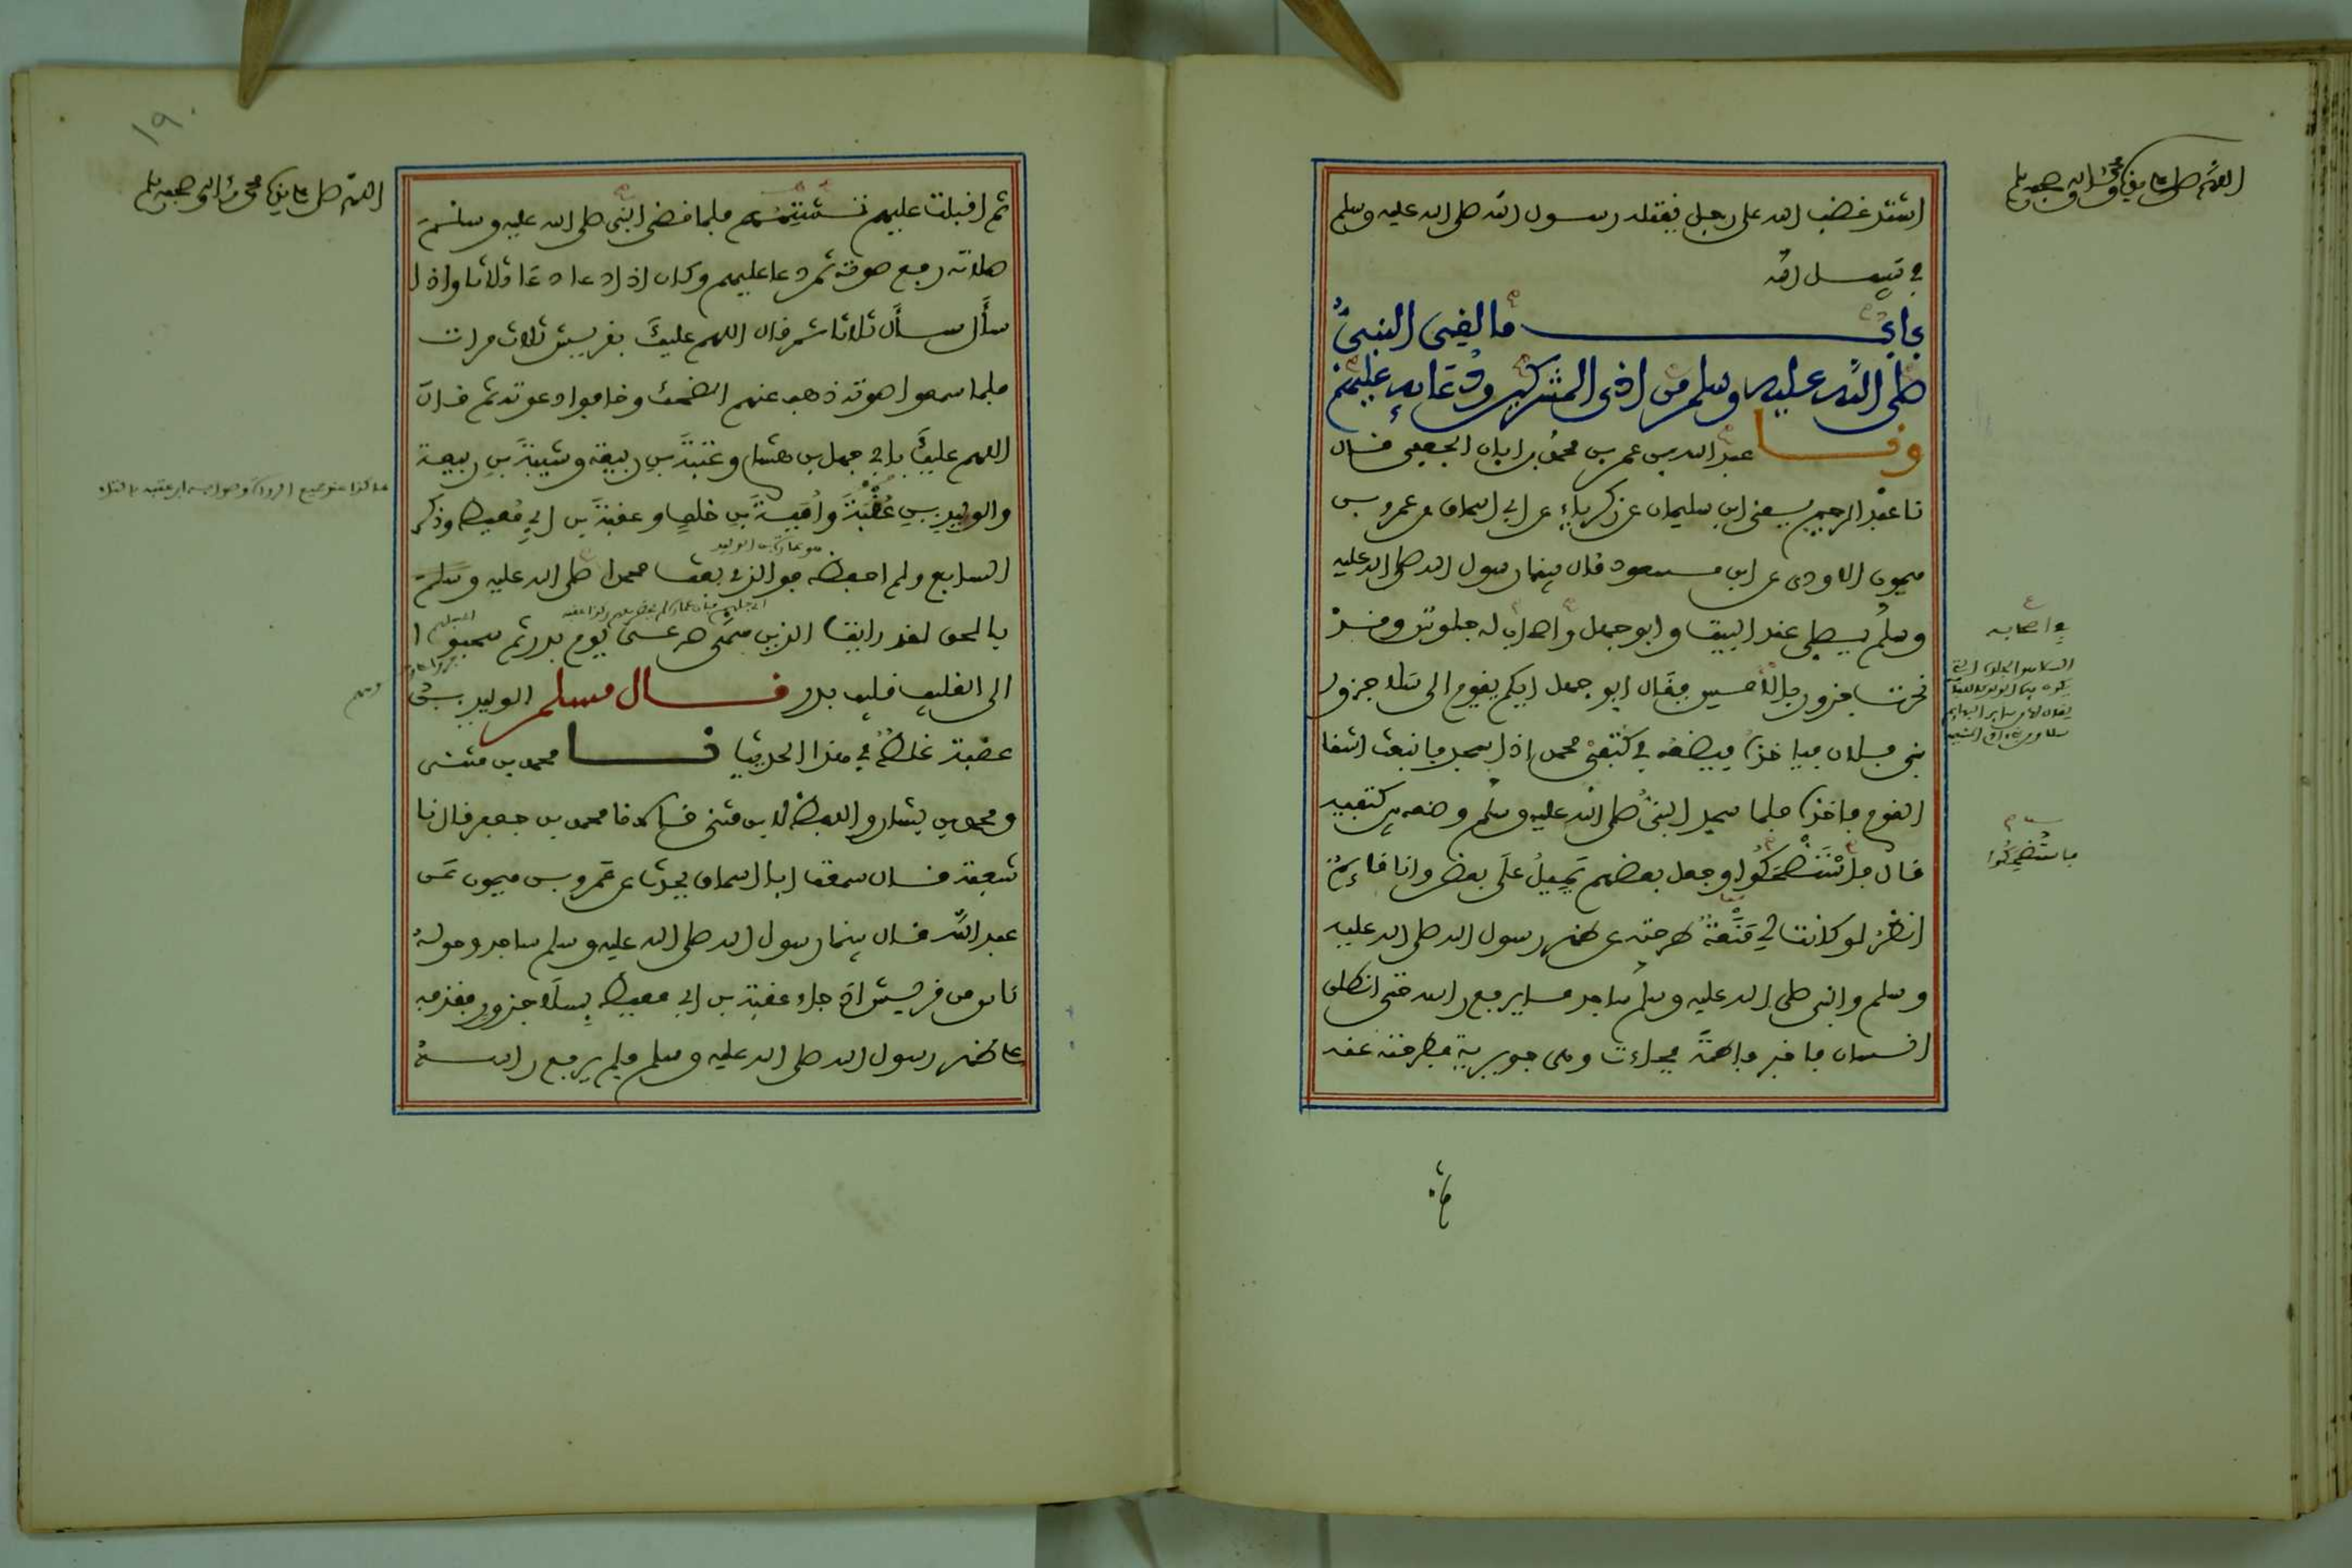 اللهم صل على سيدنا محمد وآله وصحبه وسلم
اشتد غضب الله على رجل يقتله رسول الله صلى الله عليه وسلم
في سبيل الله
باب ما لقي النبي
صلى الله عليه وسلم من اذى المشركين ودعايه عليهم
ونا عبد الله بن عمر بن محمد بن ابان الجعفي قال
نا عبد الرحيم يعني ابن سليمان عن زكرياء عن ابي اسحاق عن عمرو بن
ميمون الاودي عن ابن مسعود قال بينما رسول الله صلى الله عليه
وسلم يصلي عند البيت وابو جهل واصحاب له جلوس وقد
نحرت جزور بالامس فقال ابو جهل ايكم يقوم الى سلا جزور
بني فلان فياخذه فيضعه في كتفي محمد اذا سجد فانبعث اشقا
القوم فاخذه فلما سجد النبي صلى الله عليه وسلم وضعه بين كتفيه
قال فاستضحكوا وجعل بعضهم يميل على بعض وانا قائم
انظر لو كانت لي منعة طرحته عن ظهر رسول الله صلى الله عليه
وسلم والنبي صلى الله عليه وسلم ساجد ما يرفع راسه حتى انطلق
انسان فاخبر فاطمة فجاءت وهي جويرية فطرحته عنه
واصحابه
فاستضحكوا
١٩٠
اللهم صل على سيدنا محمد وآله وصحبه وسلم
ثم اقبلت عليهم تشتمهم فلما قضى النبي صلى الله عليه وسلم
صلاته رفع صوته ثم دعا عليهم وكان اذا دعا دعا ثلاثا واذا
سأل سأل ثلاثا ثم قال اللهم عليك بقريش ثلاث مرات
فلما سمعوا صوته ذهب عنهم الضحك وخافوا دعوته ثم قال
اللهم عليك بابي جهل بن هشام وعتبة بن ربيعة وشيبة بن ربيعة
والوليد بن عقبة وامية بن خلف وعقبة بن ابي معيط وذكر
هو عمارة بن الوليد
السابع ولم احفظه فوالذي بعث محمدا صلى الله عليه وسلم
بالحق لقد رايت الذين سمى صرعى يوم بدر ثم سحبوا
الى القليب قليب بدر قال مسلم الوليد بن
عقبة غلط في هذا الحديث نا محمد بن مثنى
ومحمد بن بشار واللفظ لابن مثنى قالا نا محمد بن جعفر قال نا
شعبة قال سمعت ابا اسحاق يحدث عن عمرو بن ميمون عن
عبد الله قال بينما رسول الله صلى الله عليه وسلم ساجد وحوله
ناس من قريش اذ جاء عقبة بن ابي معيط بسلا جزور فقذفه
على ظهر رسول الله صلى الله عليه وسلم فلم يرفع راسه